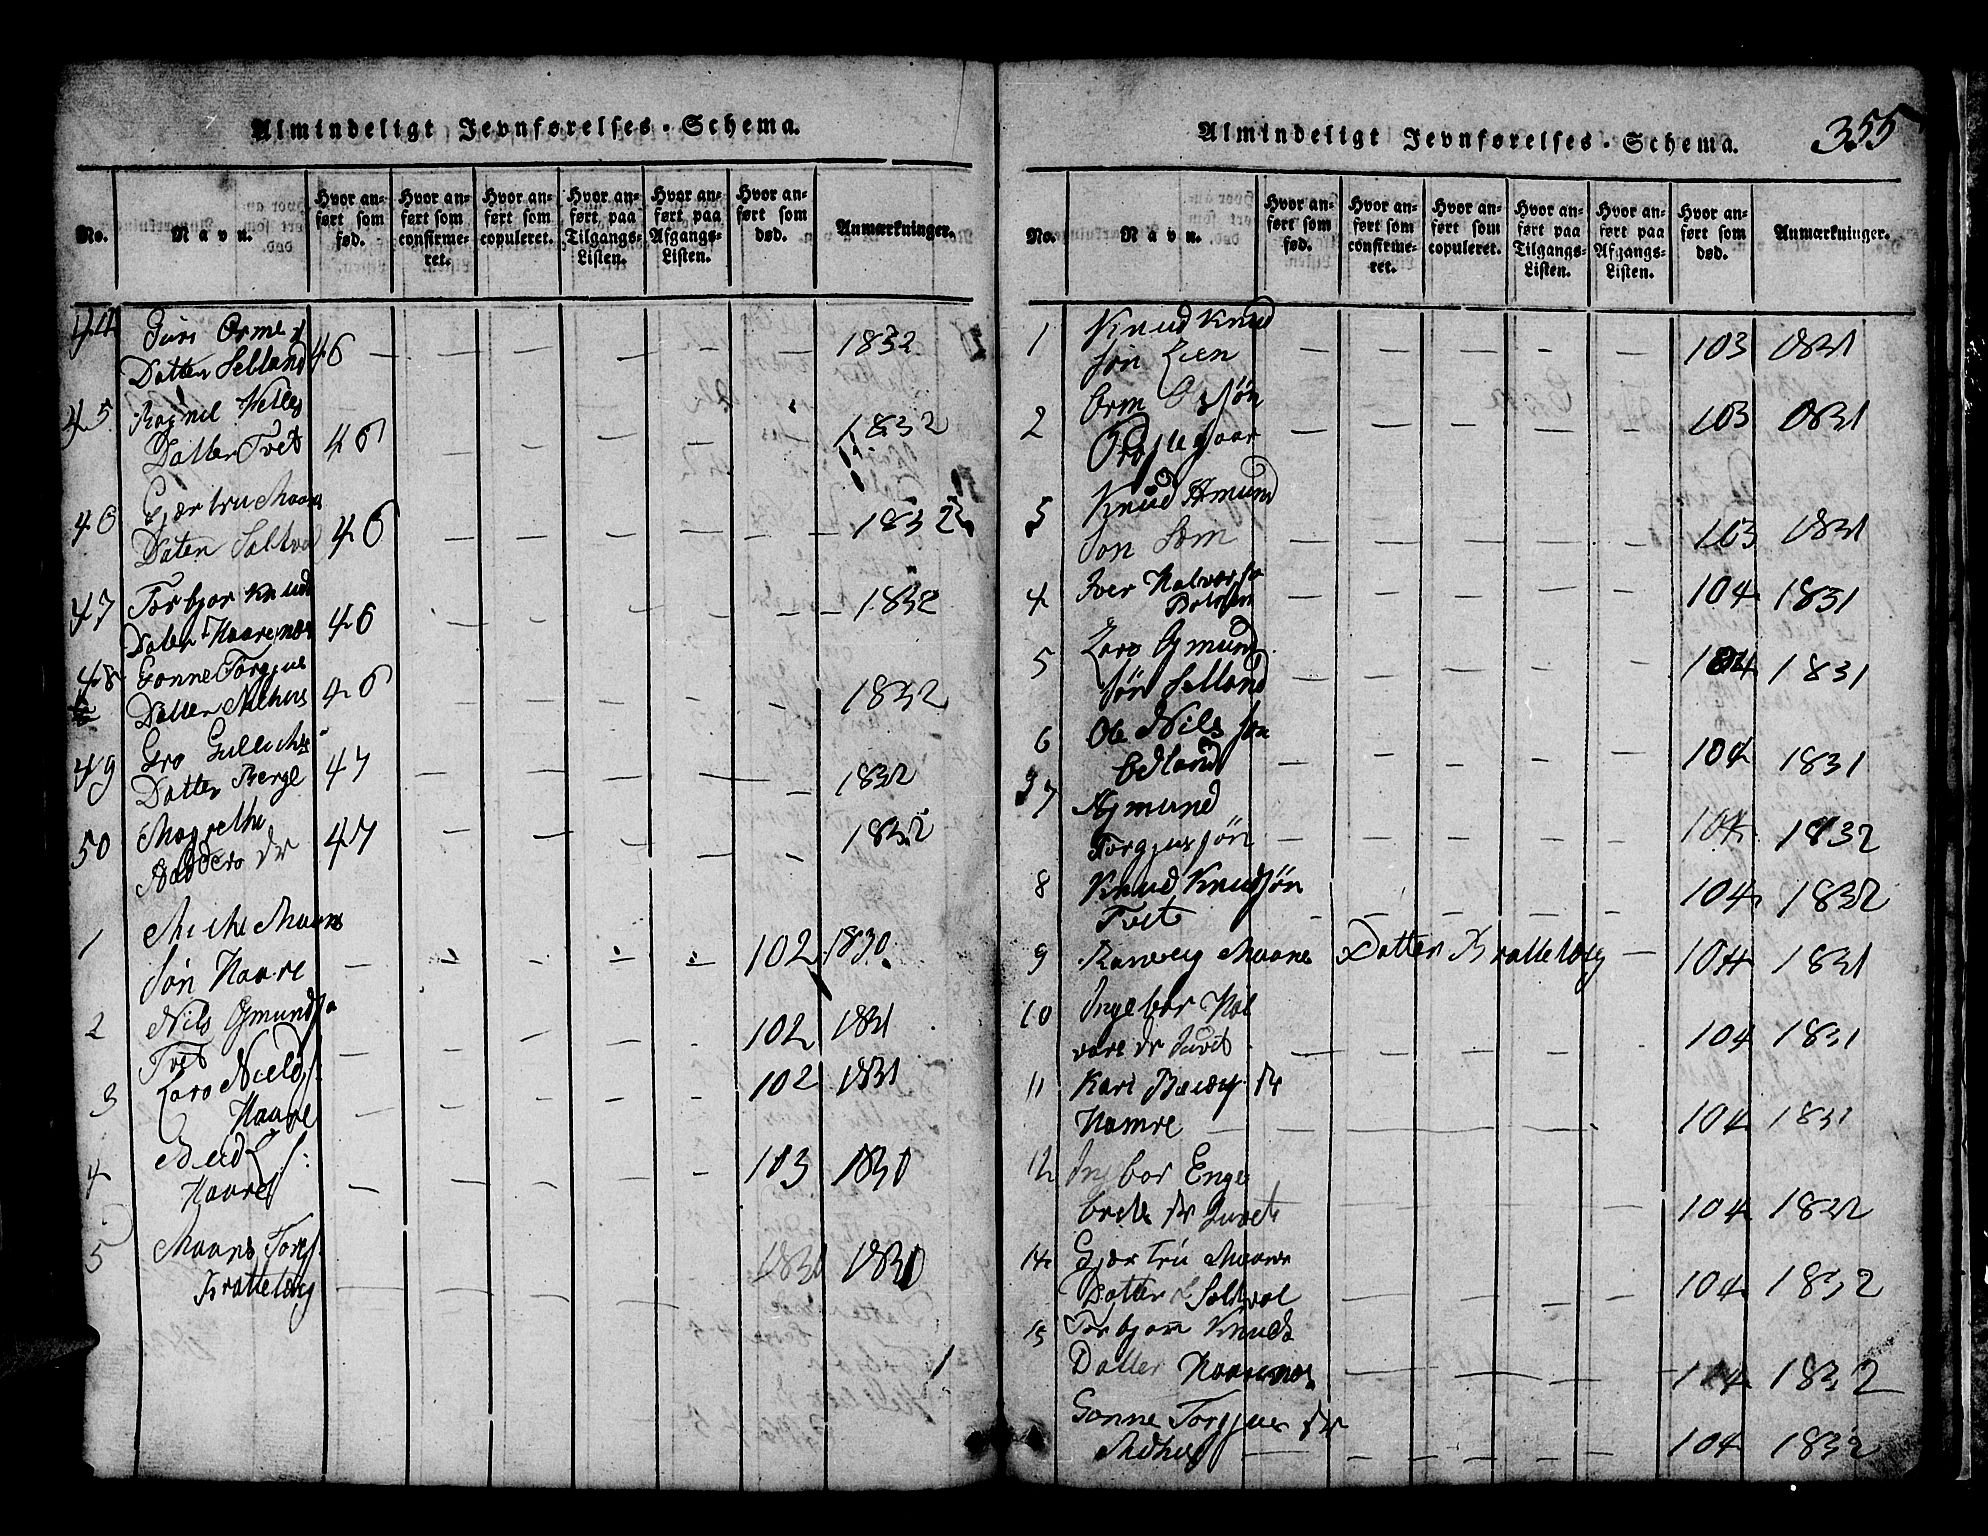 Almindeligt Jevnførelses-Schema.
No.
Navn.
Hvor anført som fød.
Hvor anført som confirmeret.
Hvor anført som copuleret.
Hvor anført paa Tilgangs-Listen.
Hvor anført paa Afgangs-Listen.
Hvor anført som død.
Anmærkninger.
44 Guri Orme
Datter Selland 46 — — — — — — 1832
45 Ragnil
Datter Tvet 46 — — — — 1832
46 Gjærtru Maans
Daten Saltvol 46 — — — — — 1832
47 Torbjør Knuds
Daten Haaremoe 46 — — — — — 1832
48 Gonne Torgjus
Datter Mehus 46 — — — — 1832
49 Gro Gulleiks
Datter Berge 47 — — — — — 1832
50 Magrethe
dr 47 — — — — — 1832
1 Miche Maans
Søn Haare — — — — — 102 1830
2 Nils Gjmunds
Tvet — — — — 102 1831
3 Lars Niels
Haare — — — — 102 1831
4
Haare — — — — 103 1830
5 Maans Torgs
Kratteberg — — — — 1830 1830
Almindeligt Jevnførelses-Schema. 355
No.
Navn.
Hvor anført som fød.
Hvor anført som confirmeret.
Hvor anført som copuleret.
Hvor anført paa Tilgangs-Listen.
Hvor anført paa Afgangs-Listen.
Hvor anført som død.
Anmærkninger.
1 Knud Knud
søn Lien — — — — — 103 1831
2 Orm
— — — — — 103 1831
3 Knud Amund
Søn — — — — — 103 1831
4 Iver Halvorsø
— — — — — 104 1831
5 Lars Gjmund
søn Selland — — — — 104 1831
6 Ole Nils søn
Edland — — — — 104 1831
7 Gjmund
Torgjussøn — — — — 104 1832
8 Knud Knudsøn
Tvet — — — — — 104 1832
9 Ranveig Maans Datter Kratteberg — 104 1831
10 Ingebor Hal
vors dr Juvet — — — — — 104 1831
11 Kari dr
Hamre — — — — 104 1831
12 Ingbor Enge
brets dr Juvet — — — 104 1832
14 Gjærtru Maans
Datter Saltvol — — — — 104 1832
15 Torbjørn Knuds
Datter Haaremoe — — — — 104 1832
Gonne Torgjus dr
Mehus — — — — — 104 1832